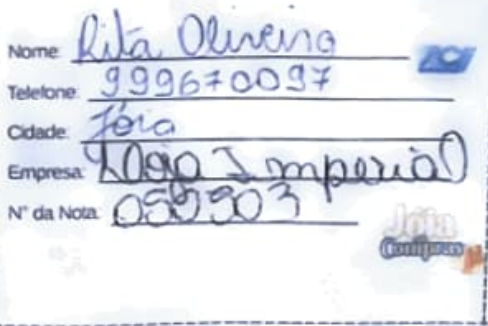 Nome: Rita Oliveira
Telefone: 999670097
Cidade: Jóia
Empresa: Loja Imperial
N° da Nota: 059903
Jóia
Compras